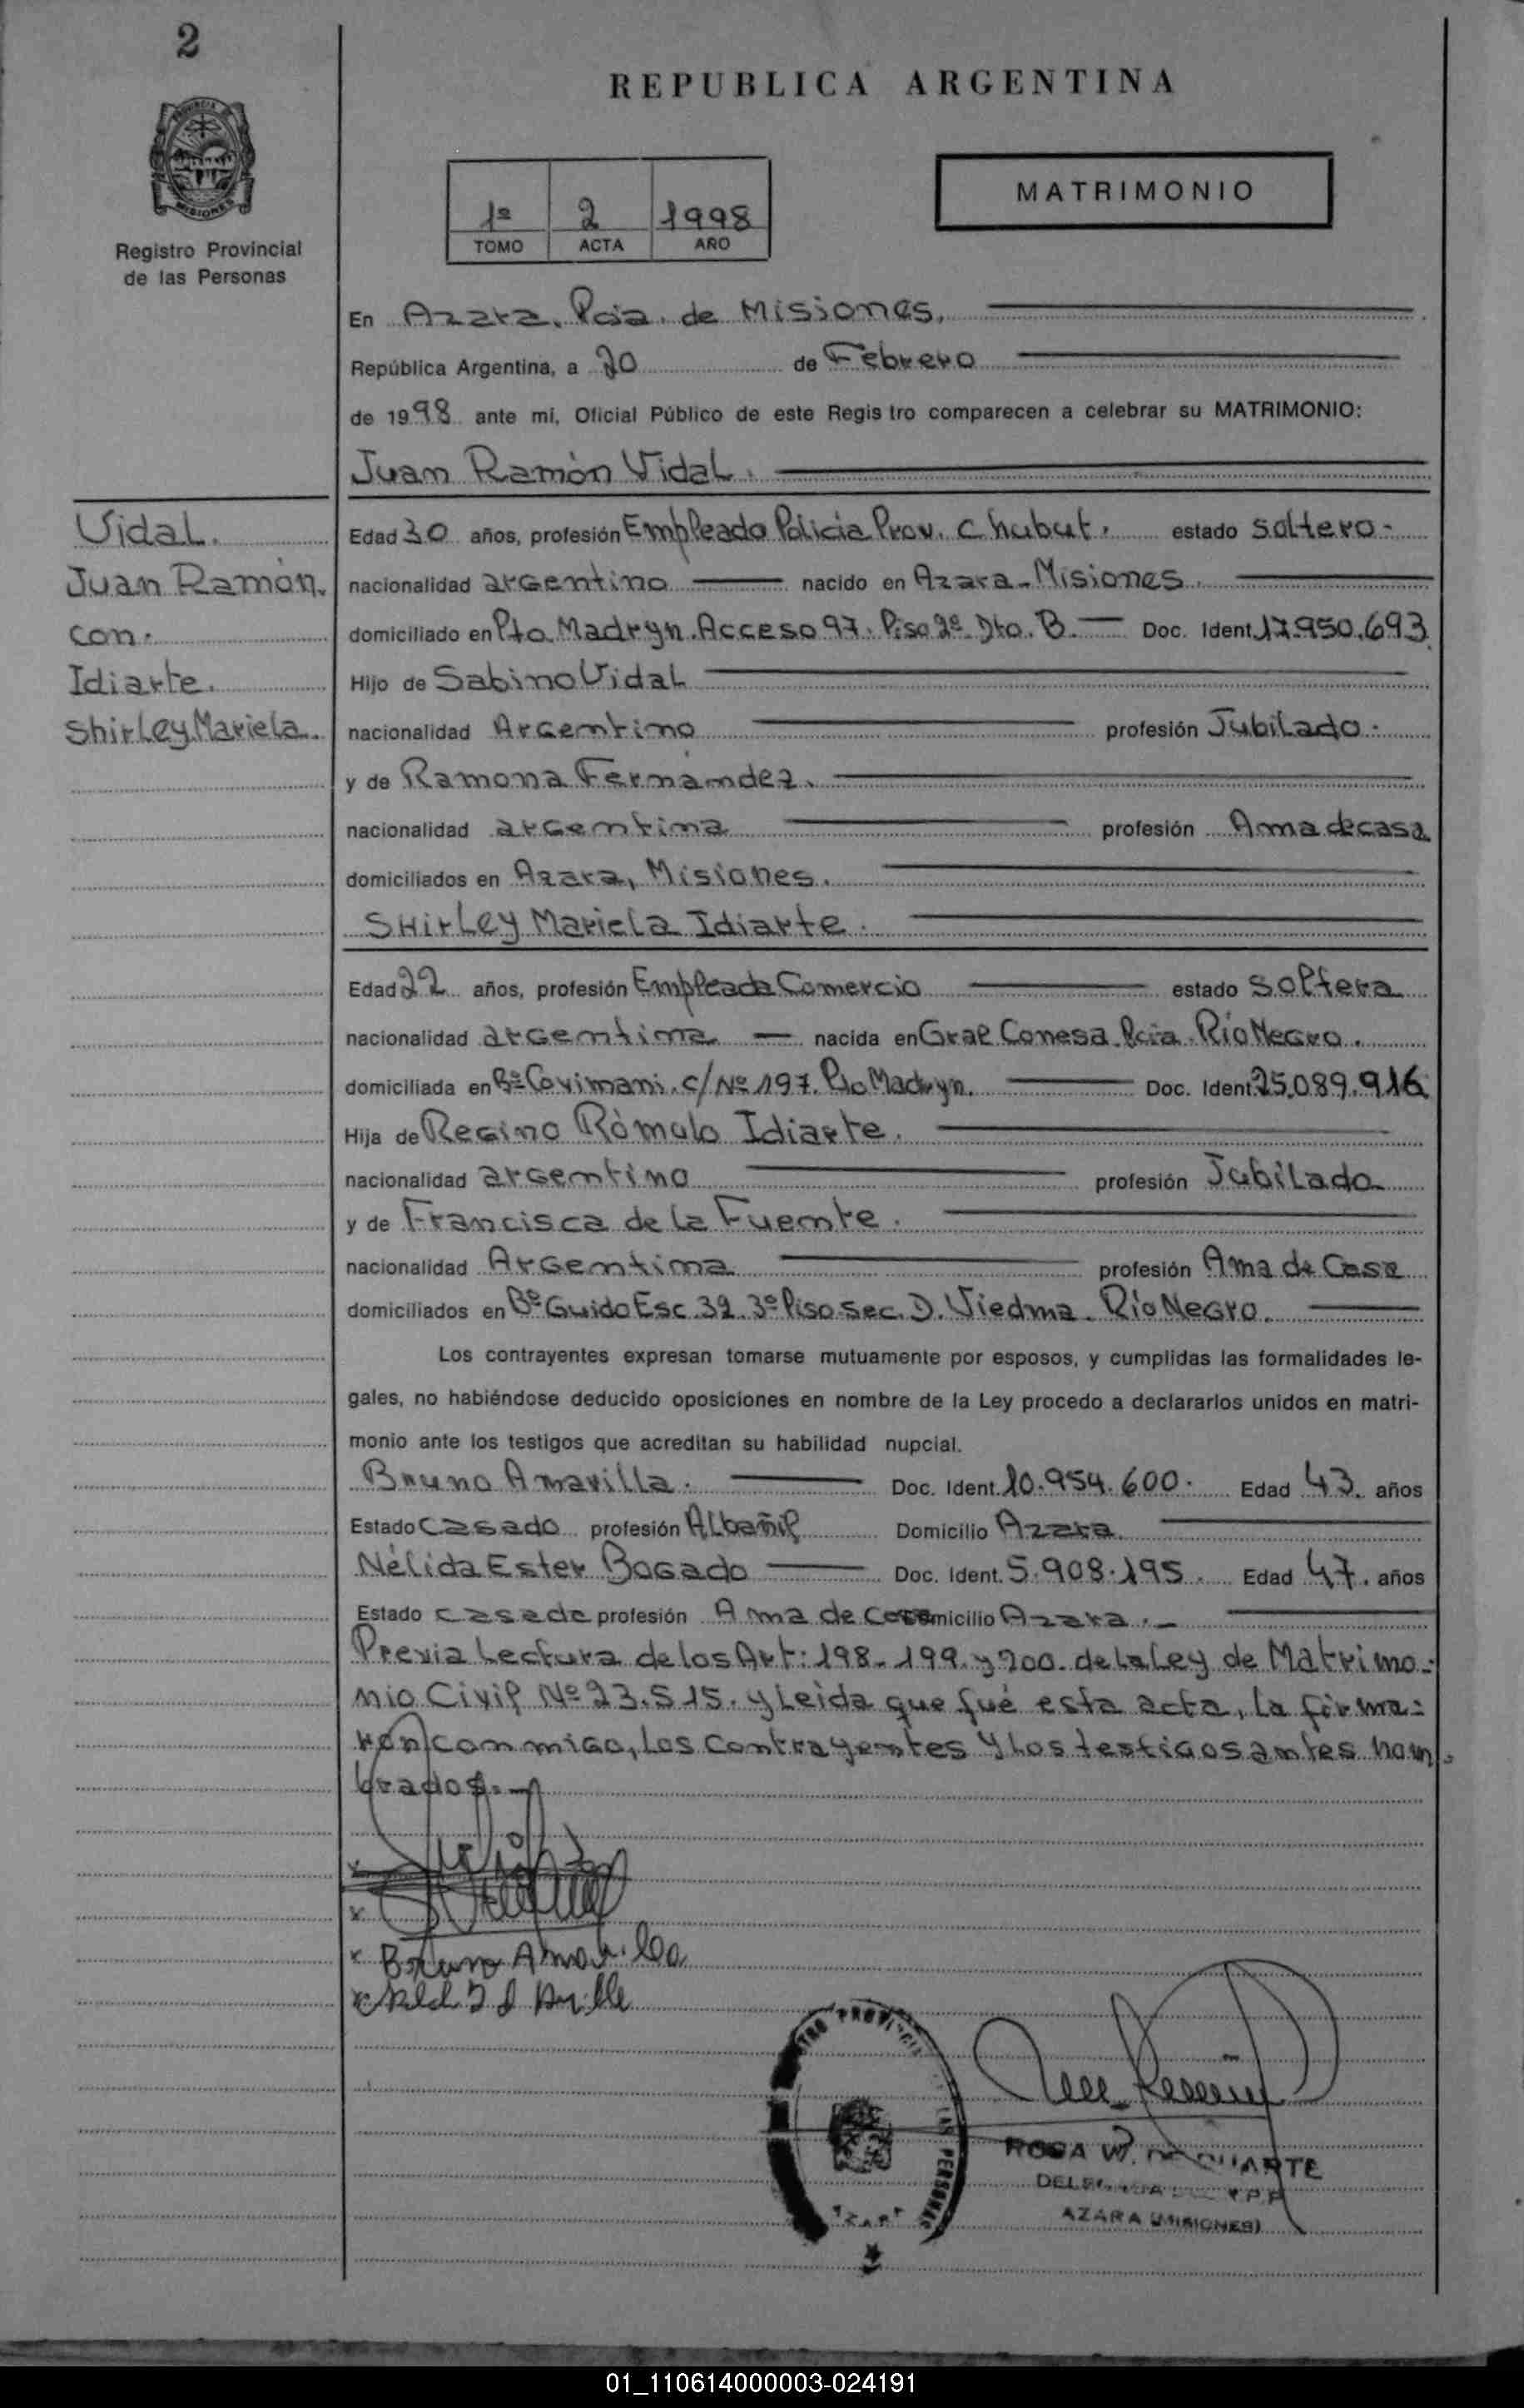 2
REPUBLICA ARGENTINA
MISIONES
Registro Provincial
de las Personas
1º 2 1998
TOMO ACTA AÑO
MATRIMONIO
En Azara, Pcia. de Misiones.
República Argentina, a 20 de Febrero
de 1998 ante mi, Oficial Público de este Regis tro comparecen a celebrar su MATRIMONIO:
Juan Ramòn Vidal.
Vidal.
Juan Ramòn.
con.
Idiarte.
Shirley Mariela.
Edad 30 años, profesión Empleado Policia Prov. Chubut. estado soltero-
nacionalidad argentino nacido en Azara-Misiones.
domiciliado en Pto. Madryn. Acceso 97. Piso 2º. Dto. B. Doc. Ident. 17.950.693
Hijo de Sabino Vidal
nacionalidad Argentino profesión Jubilado.
y de Ramona Fernàndez.
nacionalidad argentina profesión Ama de casa
domiciliados en Azara, Misiones.
Shirley Mariela Idiarte.
Edad 22 años, profesión Empleada Comercio estado soltera
nacionalidad argentina nacida en Gral Conesa. Pcia. Rio Negro.
domiciliada en Bº Covimani. c/Nº 197. Pto Madryn. Doc. Ident. 25.089.916
Hija de Regino Ròmulo Idiarte.
nacionalidad argentino profesión Jubilado
y de Francisca de la Fuente.
nacionalidad Argentina profesión Ama de Casa
domiciliados en Bº Guido Esc. 32. 3º Piso. sec. D. Viedma. Rio Negro.
Los contrayentes expresan tomarse mutuamente por esposos, y cumplidas las formalidades le-
gales, no habiéndose deducido oposiciones en nombre de la Ley procedo a declararlos unidos en matri-
monio ante los testigos que acreditan su habilidad nupcial.
Bruno Amarilla. Doc. Ident. 10.954.600. Edad 43. años
Estado casado profesión Albañil Domicilio Azara
Nèlida Ester Bogado Doc. Ident. 5.908.195. Edad 47. años
Estado casada profesión Ama de Casa micilio Azara.
Previa Lectura de los Art: 198-199. y 200. de la Ley de Matrimo-
nio Civil Nº 23.515. y Leida que fuè esta acta, la firma=
ron conmigo, los contrayentes y los testigos antes nom-
brados.
x
x
x Bruno Amarilla
x
ROSA W. DE DUARTE
AZARA (MISIONES)
PERSONAS
01_110614000003-024191